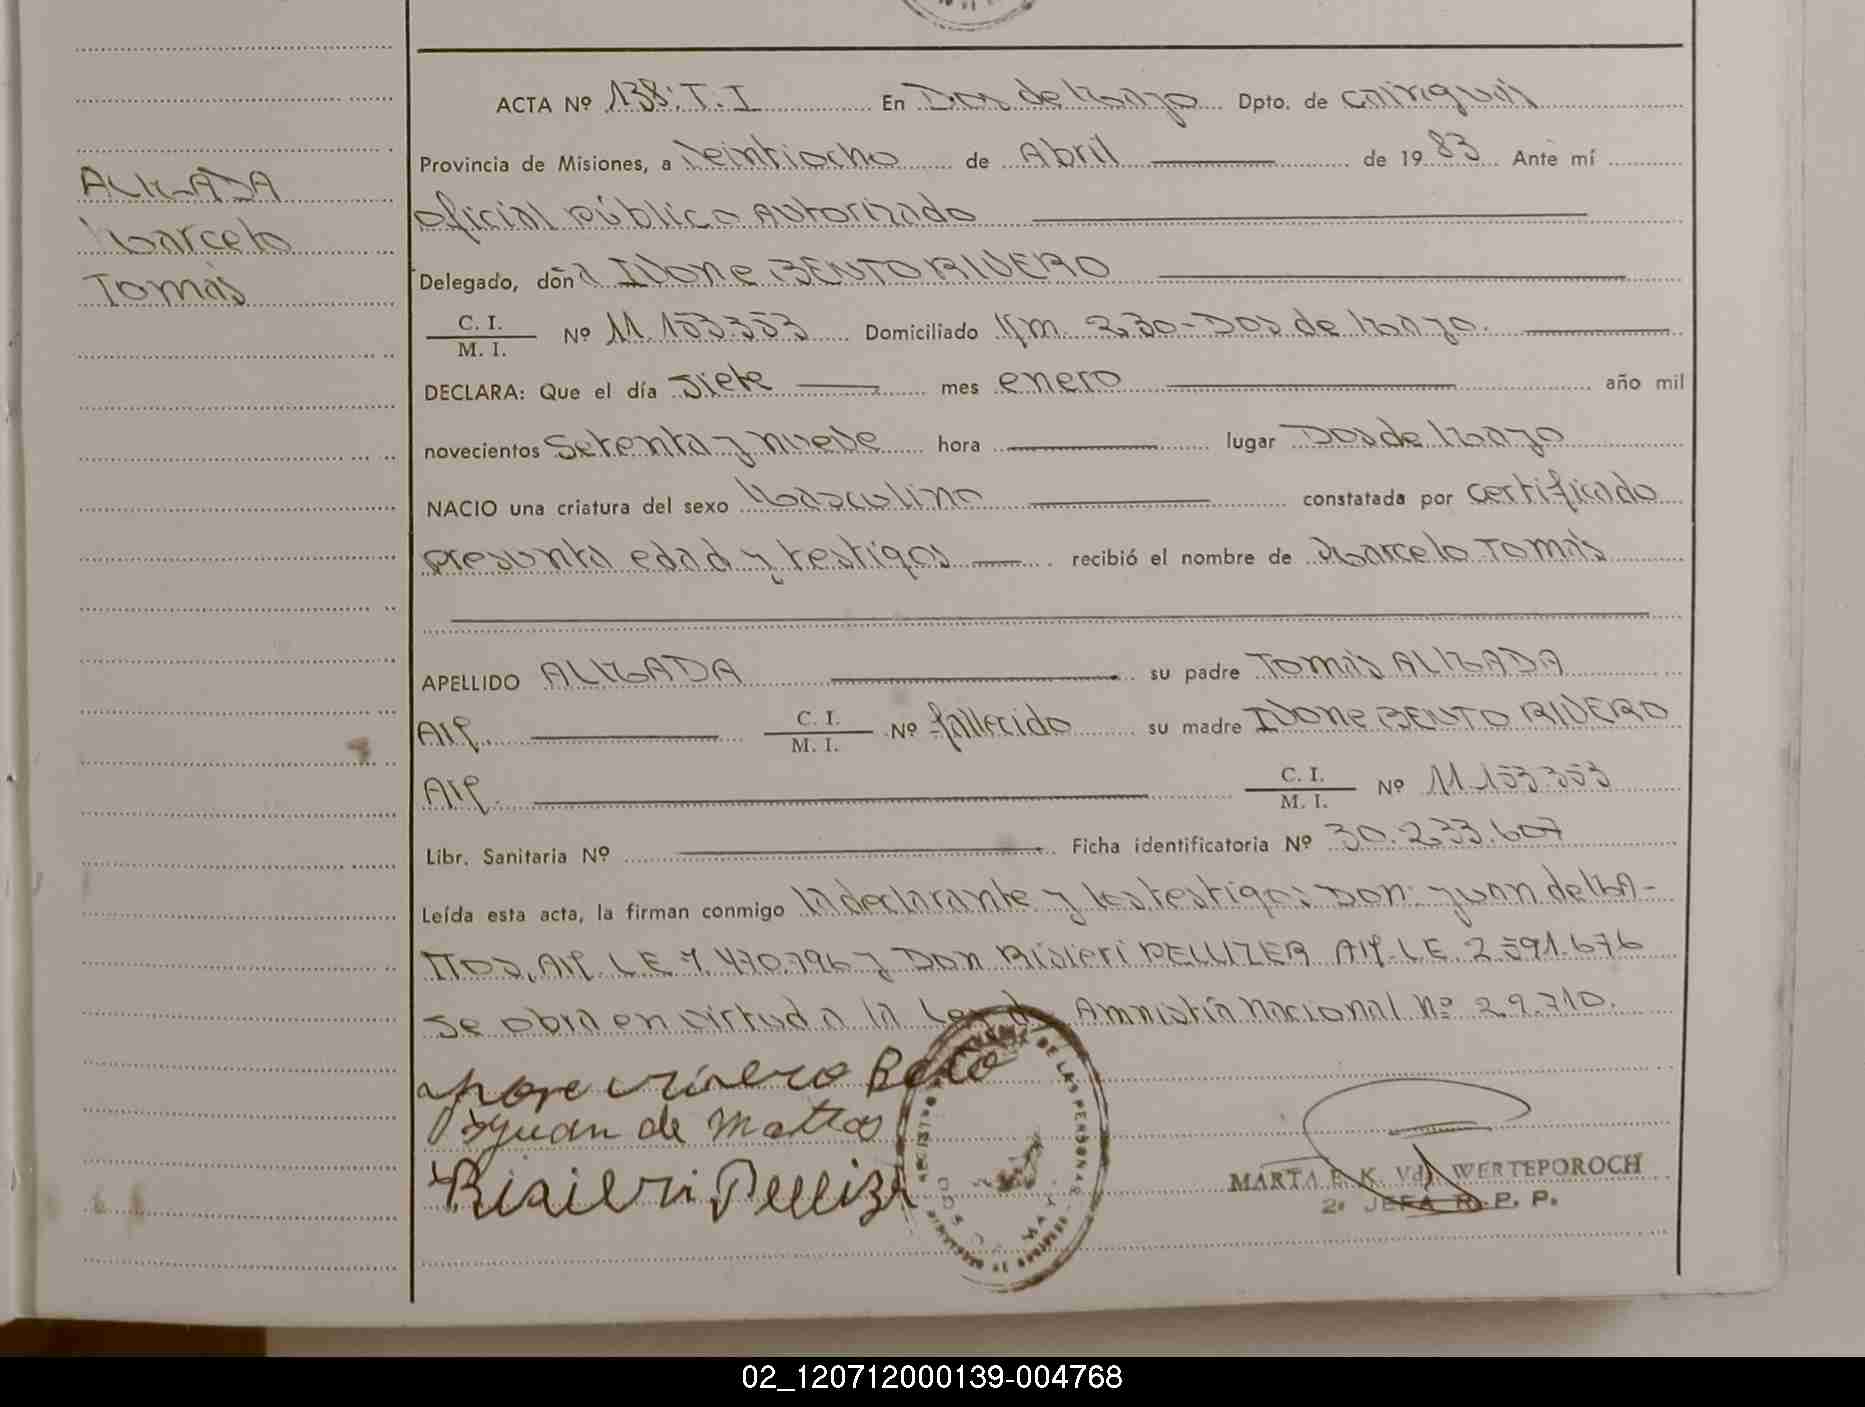 ALMADA
Marcelo
Tomás
ACTA Nº 138. T. I En Dos de Mayo Dpto. de Cainguás
Provincia de Misiones, a Veintiocho de Abril de 1983 Ante mí
oficial público Autorizado
Delegado, doña Ivone BENTO RIVERO
C. I. / M. I. Nº 11.153.353 Domiciliado Km. 230-Dos de Mayo.
DECLARA: Que el día Siete mes enero año mil
novecientos Setenta y nueve hora lugar Dos de Mayo
NACIO una criatura del sexo Masculino constatada por certificado
presunta edad y testigos recibió el nombre de Marcelo Tomás
APELLIDO ALMADA su padre Tomás ALMADA
C. I. / M. I. Nº fallecido su madre Ivone BENTO RIVERO
C. I. / M. I. Nº 11.153.353
Libr. Sanitaria Nº Ficha identificatoria Nº 30.233.607
Leída esta acta, la firman conmigo la declarante y los testigos Don: Juan de MA-
TTOS, L E 7.470.796 y Don Risieri PELLIZER L E 2 591.676
Se obra en virtud a la Ley de Amnistía Nacional nº 22.710.
Rivero Bento
Juan de Mattos
Risieri Pellizer
REGISTRO DE LAS PERSONAS
DOS DE MAYO
MARTA E. K. Vda. WERTEPOROCH
2º JEFA R. P. P.
02_120712000139-004768